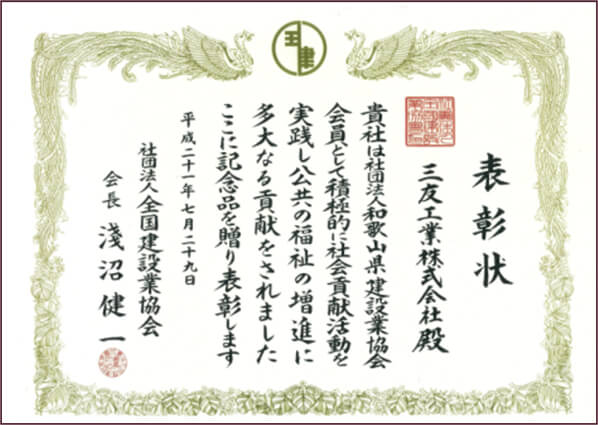 表彰状
三友工業株式会社殿
貴社は社団法人和歌山県建設業協会
会員として積極的に社会貢献活動を
実践し公共の福祉の増進に
多大なる貢献をされました
ここに記念品を贈り表彰します
平成二十一年七月二十九日
社団法人全国建設業協会
会長 淺沼健一